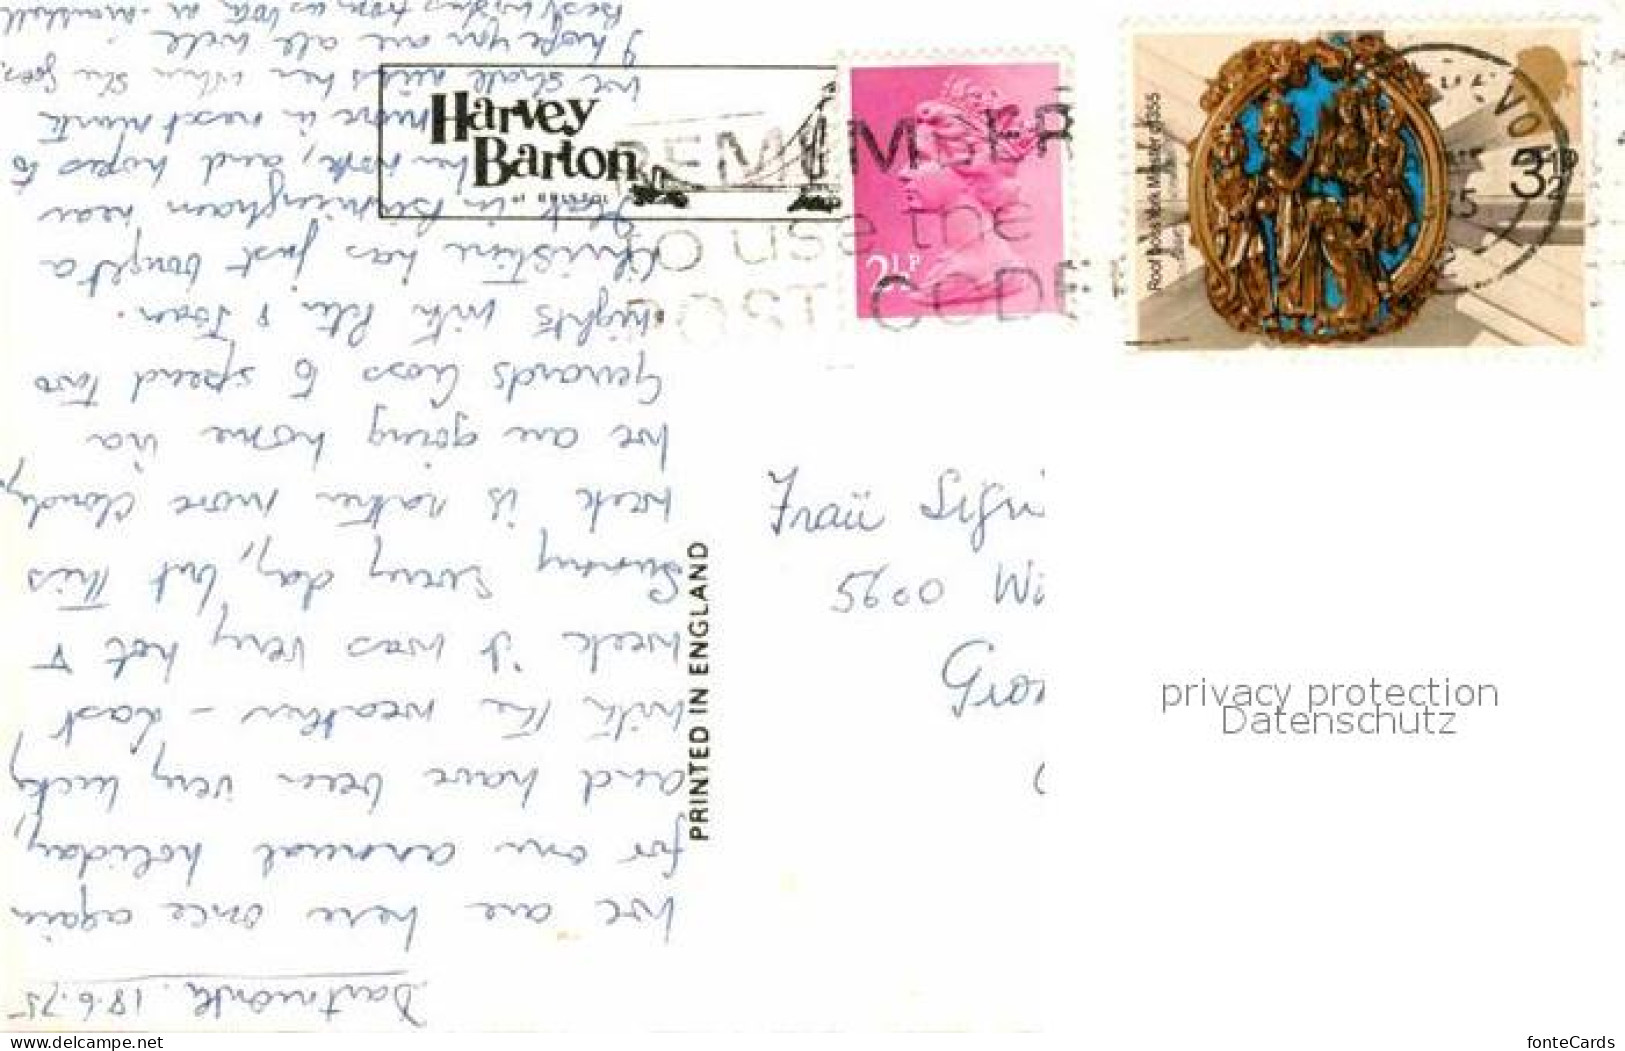 Dartmouth. 18.6.75
We are here once again
for our annual holiday,
and have been very lucky
with the weather - last
week it was very hot &
sunny every day, but this
week is rather more cloudy.
We are going home via
Gerrards Cross to spend two
nights with Peter & Joan.
Christine has just bought a
flat in Birmingham near
her work, and hopes to
move in next month
We shall miss her when she goes.
I hope you are all well.
Best wishes from us both
Harvey
Barton
OF BRISTOL
PRINTED IN ENGLAND
REMEMBER
to use the
POST CODE
2½P
Roof Boss, York Minster, c1355
3½P
Fraü
5600 Wi
privacy protection
Datenschutz
www.delcampe.net
fonteCards